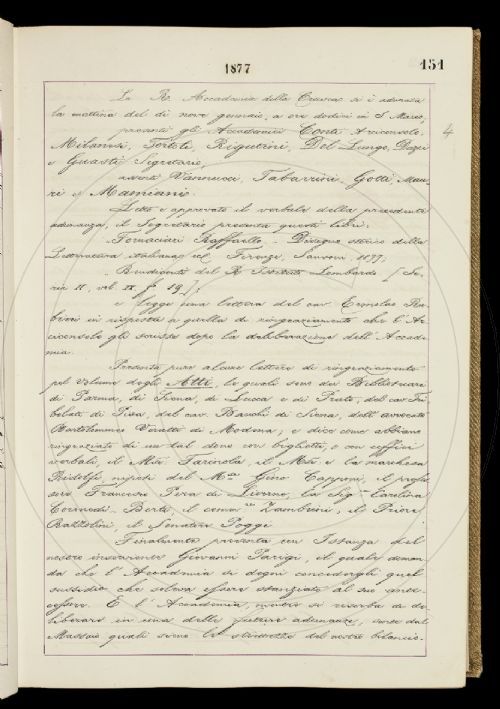 1877
151
4
La R. Accademia della Crusca si è adunata
la mattina del dì nove gennaio, a ore dodici in S. Marco,
presenti gli Accademici Conti Arciconsolo,
Milanesi, Tortoli, Rigutini, Del Lungo, Dazzi
e Guasti Segretario,
assenti Vannucci, Tabarrini, Gotti, Mauri
e Mamiani.
Letto e approvato il verbale della precedente
adunanza, il Segretario presenta questi libri:
Fornaciari Raffaello - Disegno storico della
Letteratura italiana; Firenze, Sansoni, 1877;
Rendiconti del R. Istituto Lombardo (Se-
rie II, vol. IX, f. 19.);
e legge una lettera del cav. Ermolao Ru-
bieri in risposta a quella di ringraziamento che l'Ar-
ciconsolo gli scrisse dopo la deliberazione dell'Accade-
mia.
Presenta pure alcune lettere di ringraziamento
pel volume degli Atti, le quali sono dei Bibliotecari
di Parma, di Siena, di Lucca e di Prato, del cav. Tri-
bolati di Pisa, del cav. Banchi di Siena, dell'avvocato
Bartolommeo Veratti di Modena; e dice come abbiano
ringraziato di un tal dono con biglietto, o con uffici
verbali, il M.se Farinola, il M.se e la marchesa
Ridolfi, nipoti del M.se Gino Capponi, il profes-
sore Francesco Pera di Livorno, la Sig.ra Carolina
Coronedi-Berti, il comm.re Zambrini, il Priore
Bazzolini, il Senatore Poggi.
Finalmente presenta una Istanza del
nostro inserviente Giovanni Parigi, il quale doman-
da che l'Accademia si degni concedergli quel
sussidio che soleva essere stanziato al suo ante-
cessore. E l'Accademia, mentre si riserba di de-
liberare in una delle future adunanze, sente dal
Massaio quali sieno le strettezze del nostro bilancio.